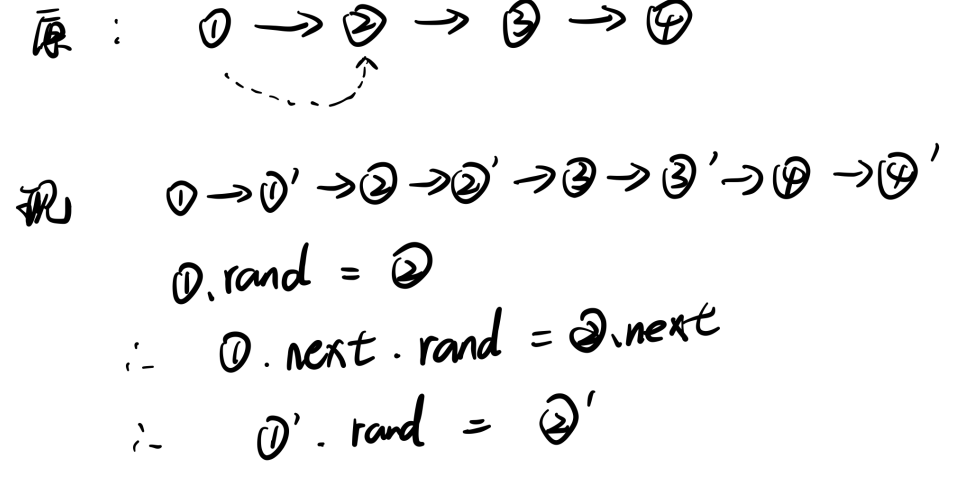 原: ① → ② → ③ → ④
现 ① → ①' → ② → ②' → ③ → ③' → ④ → ④'
①.rand = ②
∴ ①.next.rand = ②.next
∴ ①'.rand = ②'